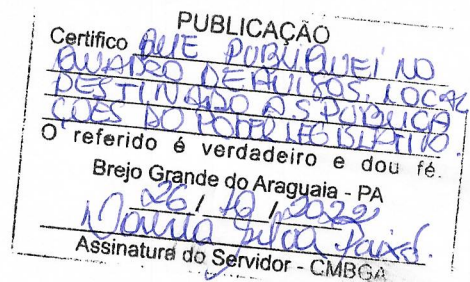 PUBLICAÇÃO
Certifico QUE PUBLIQUEI NO
QUADRO DE AVISOS, LOCAL
DESTINADO AS PUBLICA
ÇÕES DO PODER LEGISLATIVO.
O referido é verdadeiro e dou fé.
Brejo Grande do Araguaia - PA
26 / 10 / 2022
Silva
Assinatura do Servidor - CMBGA